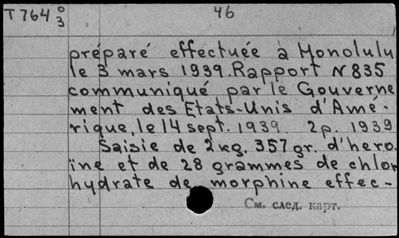 T 764 0/3 46
préparé effectuée à Honolulu
le 3 mars 1939. Rapport N 835
communiqué par le Gouverne
ment des Etats-Unis d'Amé-
rique, le 14 sept. 1939. 2p. 1939
Saisie de 2 kg. 357 gr. d'hero.
ïne et de 28 grammes de chlor
hydrate de morphine effec-
См. след. карт.